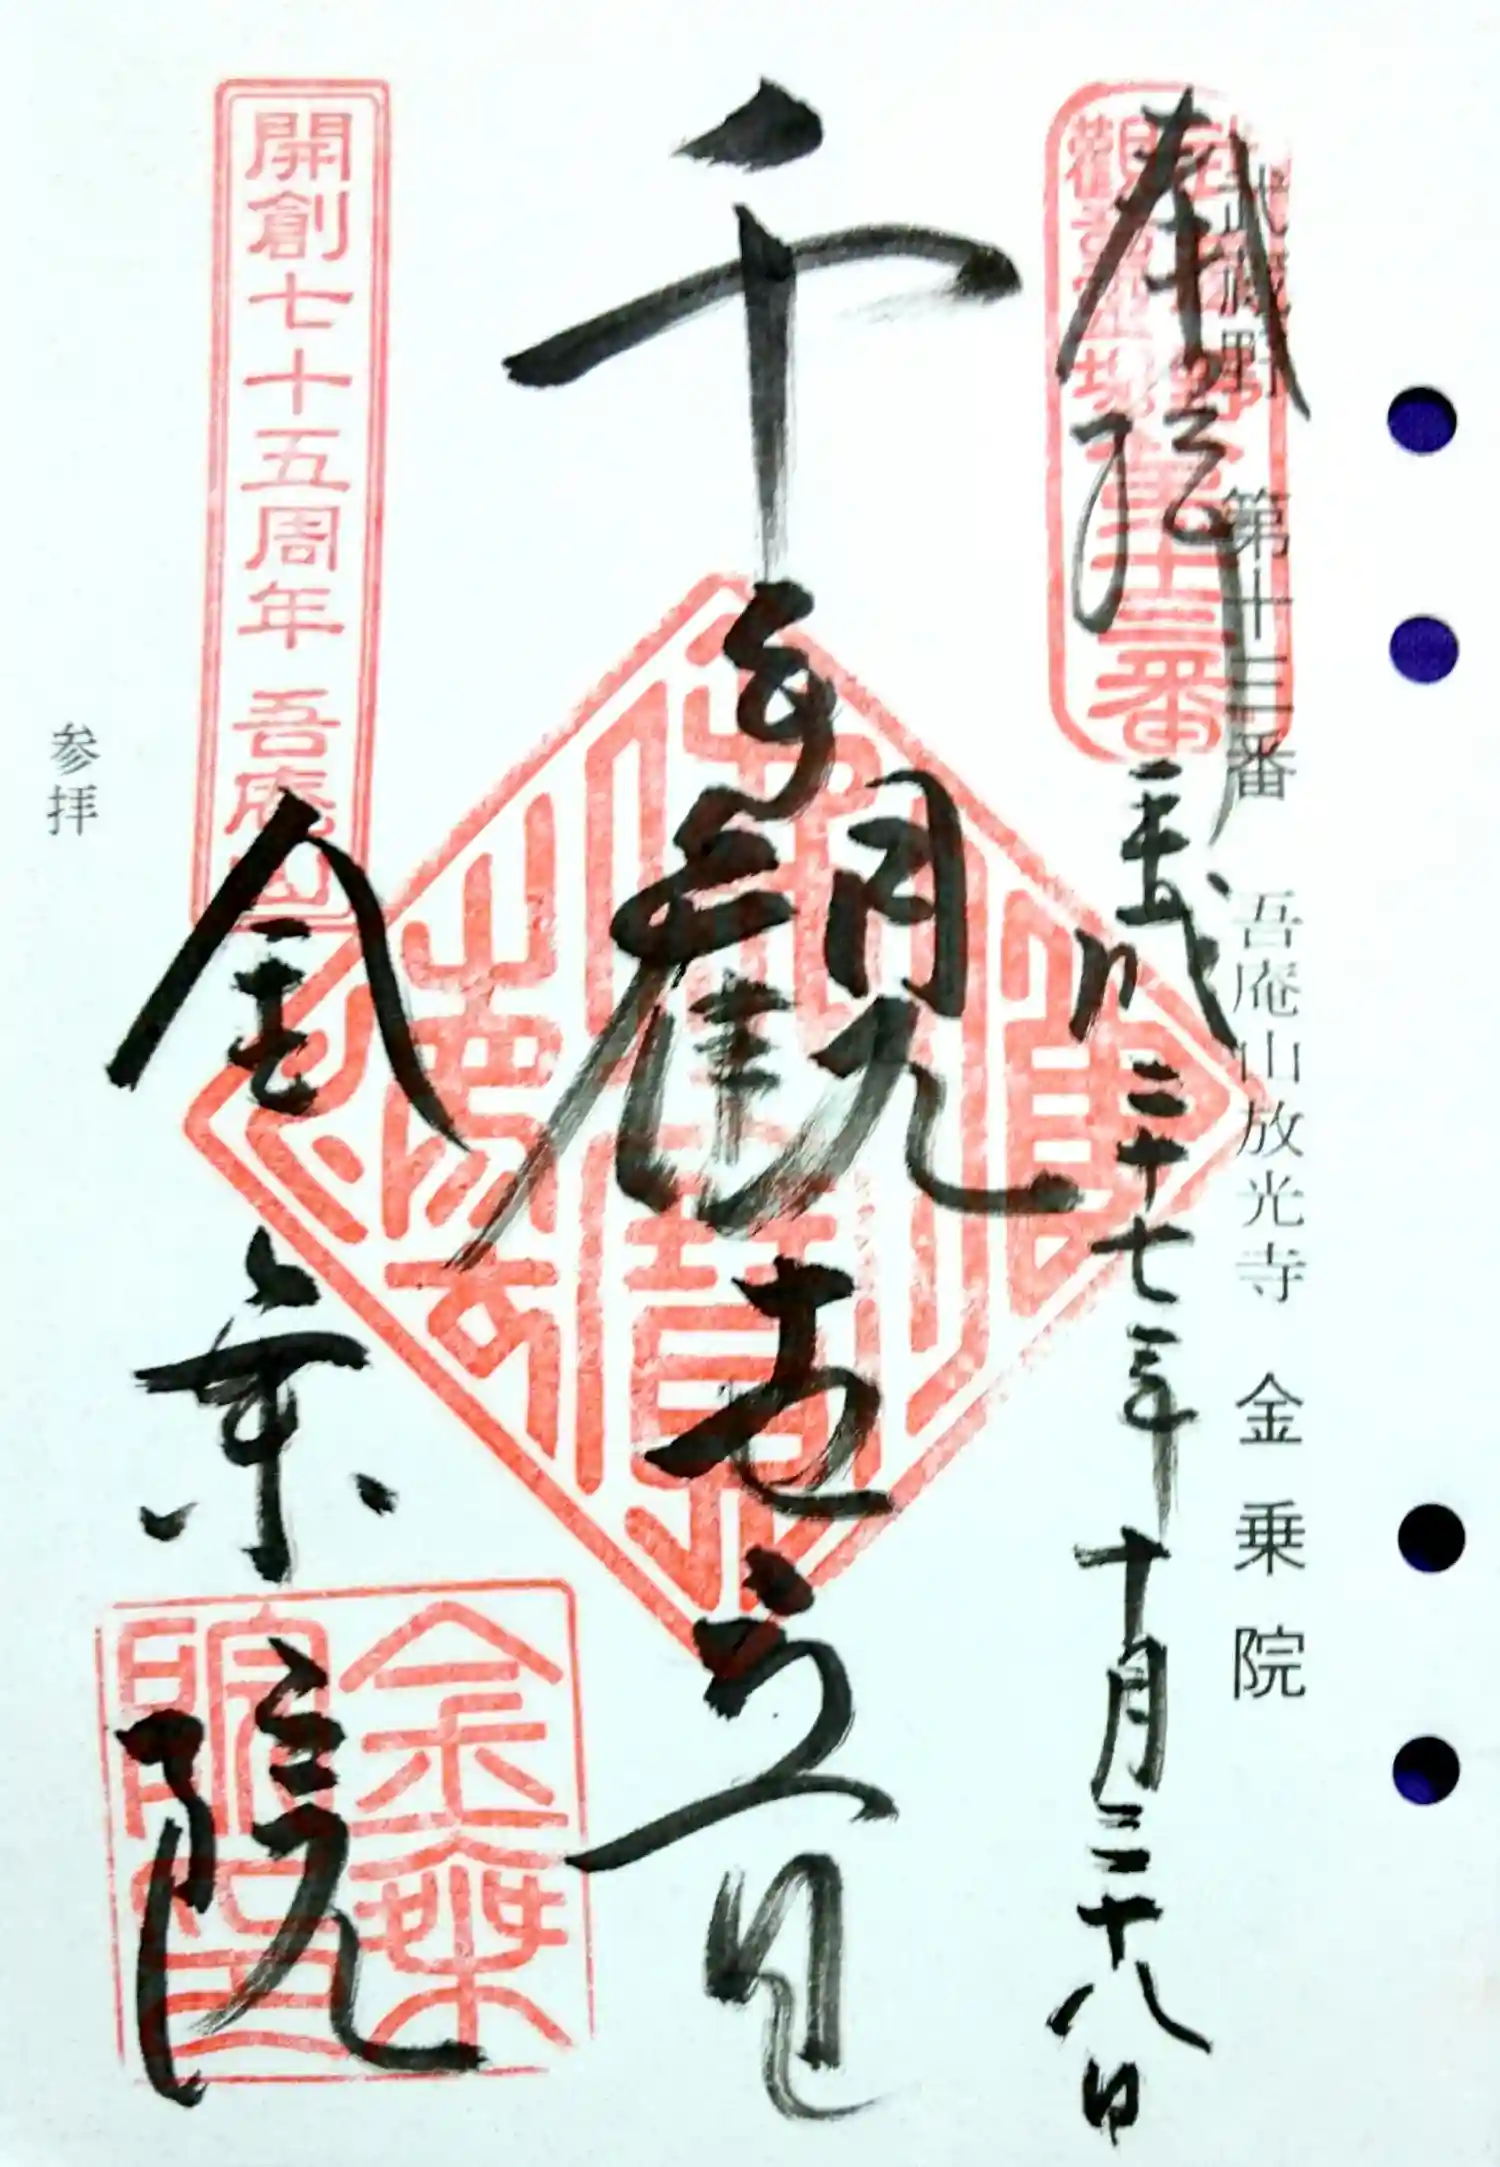 武蔵野 第十三番 吾庵山放光寺 金乗院
武蔵野
観音霊場
第十三番
奉拝
平成二十七年十月二十八日
千手観世音
金乗院
開創七十五周年 吾庵山
金乗
院印
参拝